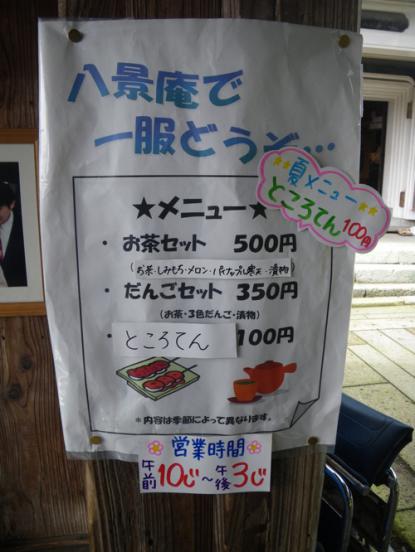 八景庵で
一服どうぞ…
★★夏メニュー★★
ところてん100円
★メニュー★
・お茶セット 500円
(お茶・しみもち・メロン・パイナップル寒天・漬物)
・だんごセット 350円
(お茶・3色だんご・漬物)
・ところてん 100円
*内容は季節によって異なります。
営業時間
午前10じ～午後3じ